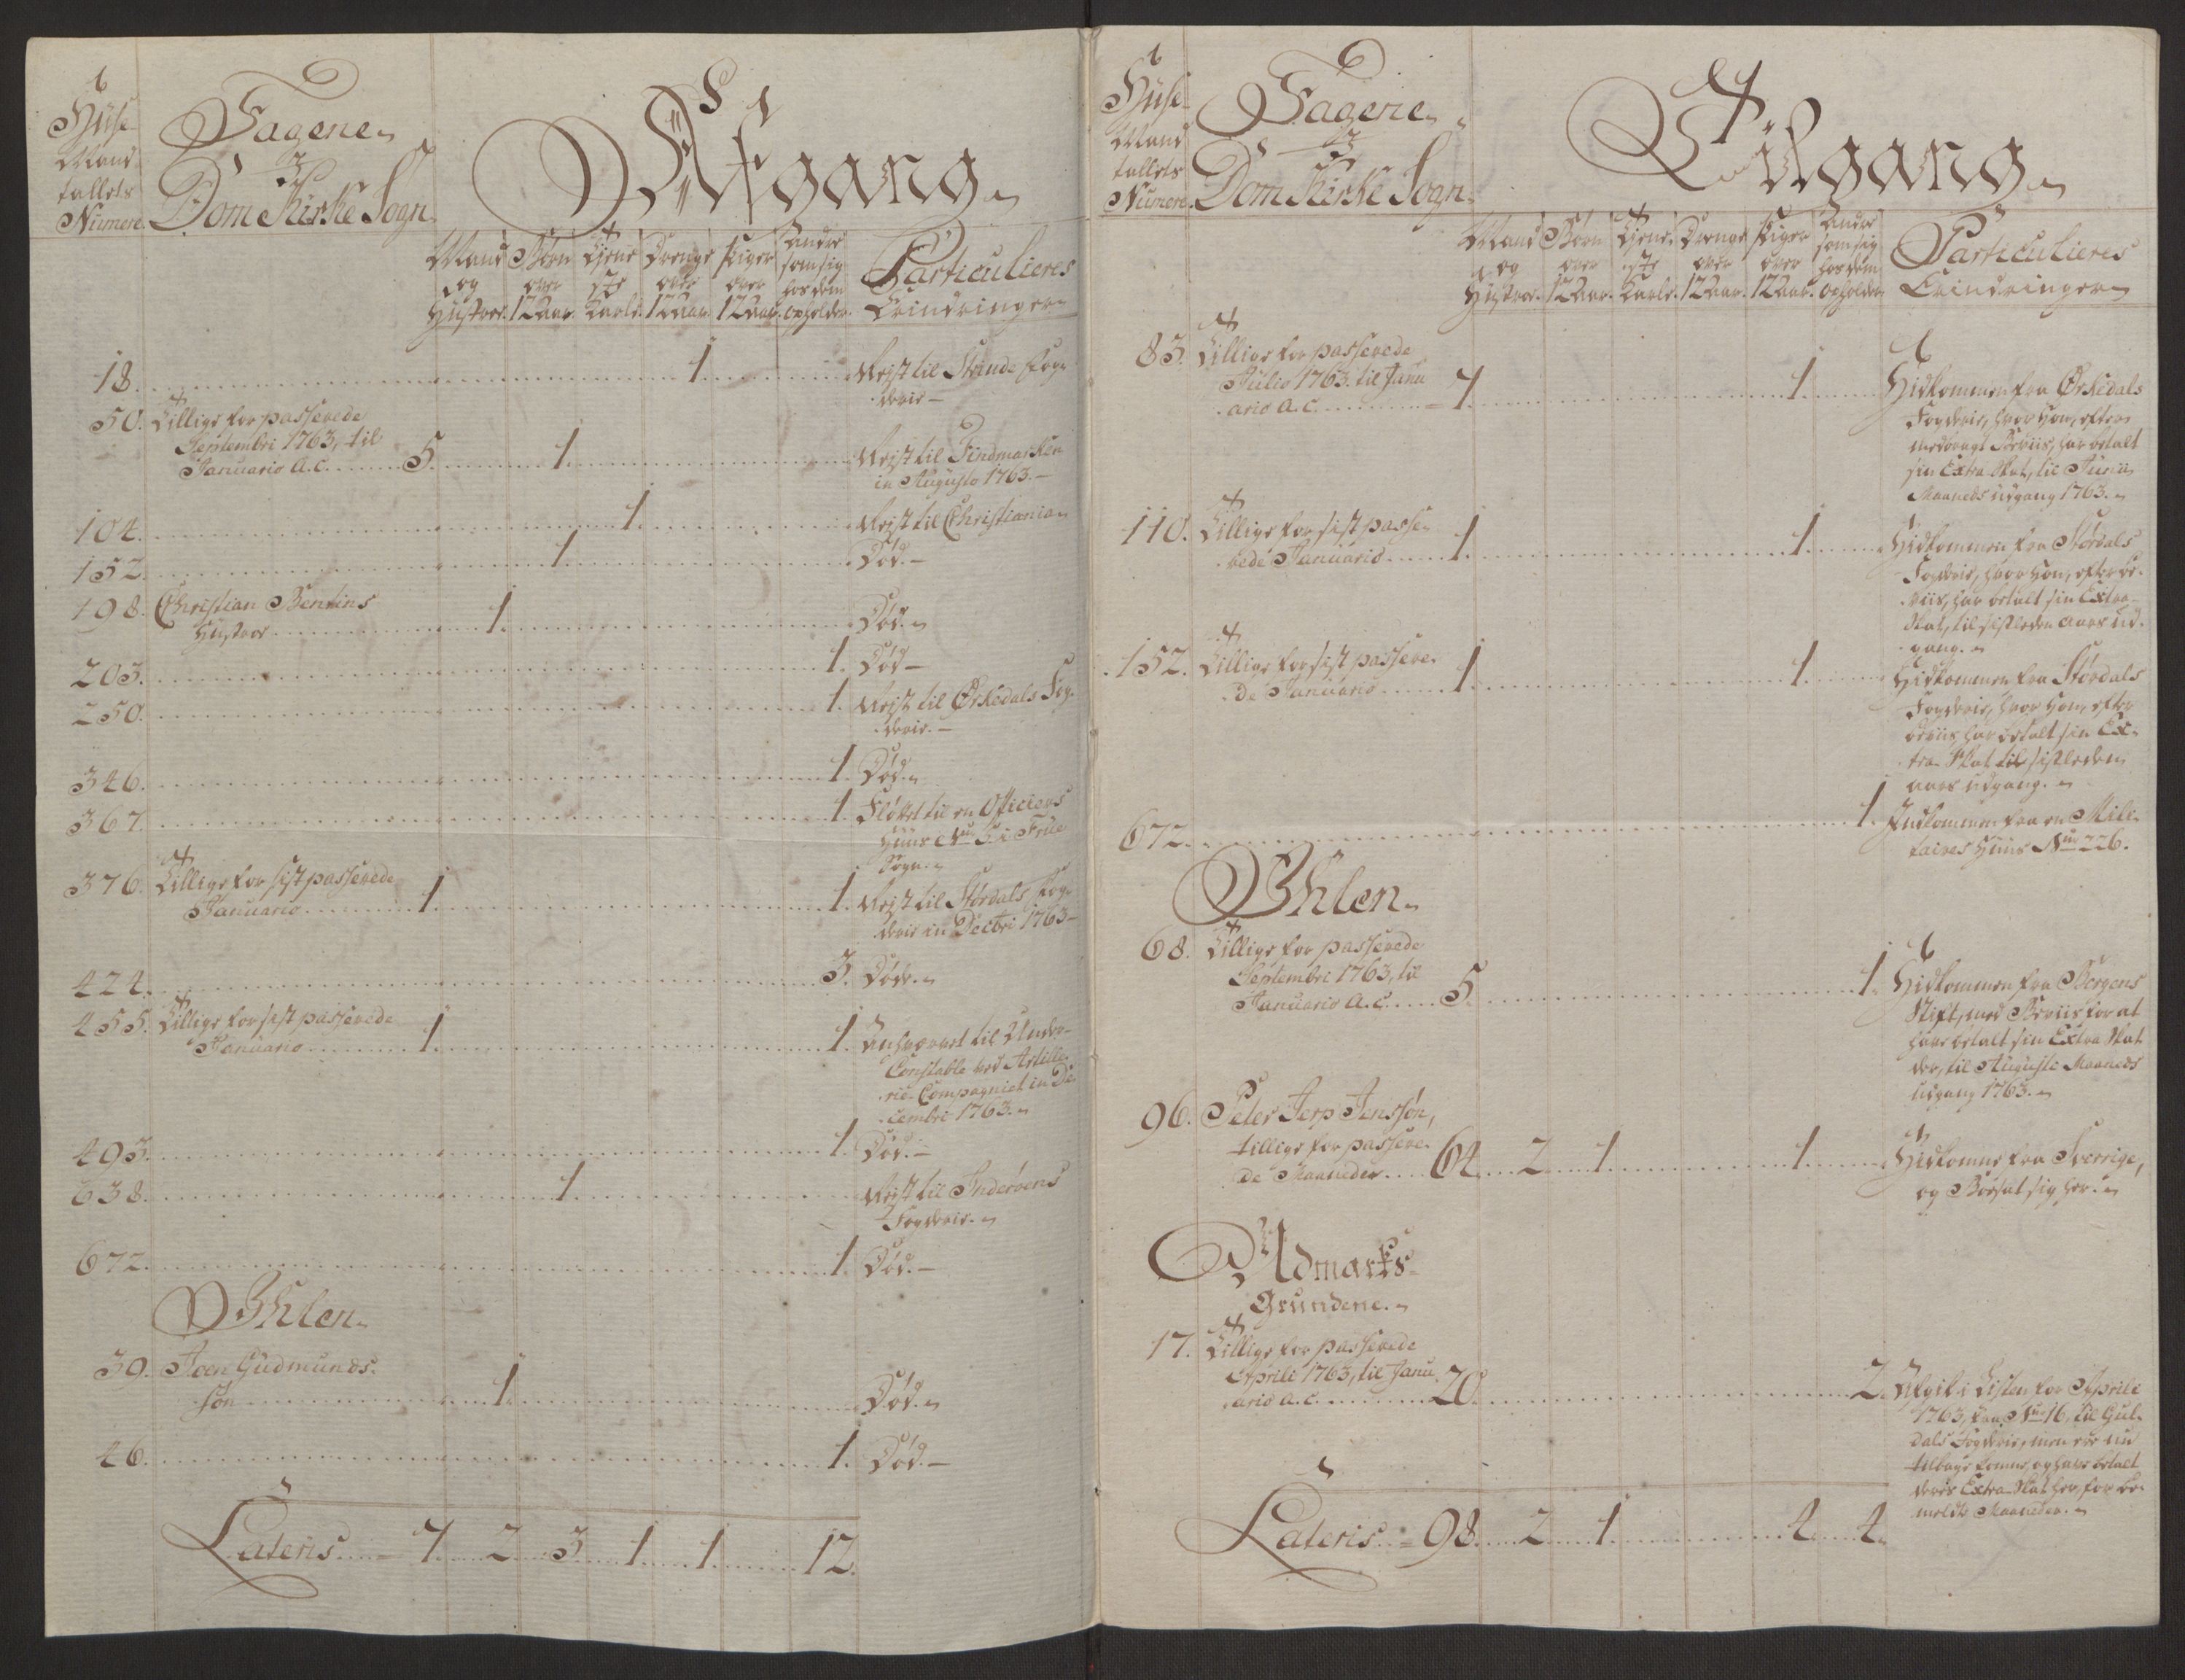 Huse
Mand
tallets
Numere.
Tagene
i
Dom Kirke Sogn.
Afgang
Mand og Hustroer.
Børn over 12 Aar.
Tjeneste Karle.
Drenge over 12 Aar.
Piger over 12 Aar.
Andre som sig hos dem opholder.
Particulieres
Erindringer
18. 1. Rejst til Strinde Fog-
derie
50. Tillige for passerede
Septembri 1763, til
Januario a.c. 5. 1. Rejst til Findmarken
in Augusto 1763.
104. 1. Rejst til Christiania
152. 1. Død.
198. Christian Bentins
Hustroe 1. Død.
203. 1. Død
250. 1. Rejst til Ørkedals Fog-
derie.
346. 1. Død.
367. 1. Fløttet til en Officiers
Huus No. 5 i Frue
Sogn.
376. Tillige for sist passerede
Januario 1. 1. Rejst til Størdals Fog-
derie in Decbri 1763
424. 3. Døde.
455. Tillige for sist passerede
Januario 1. 1. Under-
Constable ved Artille-
rie Compagniet in De-
cembri 1763.
493. 1. Død.
638. 1. Rejst til Inderøens
Fogderie.
672. 1. Død.
Ihlen.
39. Joen Gudmunds-
søn 1. Død.
46. 1. Død.
Lateris 7. 2. 3. 1. 1. 12.
Huse
Mand
tallets
Numere.
Tagene
i
Dom Kirke Sogn.
Tilgang
Mand og Hustroe.
Børn over 12 Aar.
Tjeneste Karle.
Drenge over 12 Aar.
Piger over 12 Aar.
Andre som sig hos dem opholder
Particulieres
Erindringer
83. Tillige for passerede
Julio 1763. til Janu
ario a.c. 7. 1. Hidkommen fra Ørkedals
Fogderie, hvor Hun, efter
medbragt Beviis, har betalt
sin Extra Skat, til Junii
Maaneds udgang 1763.
110. Tillige for sist passe-
rede Januario 1. 1. Hidkommen fra Størdals
Fogderie, hvor Hun, efter be-
viis, har betalt sin Extra
Skat, til sistleden aars ud-
gang.
152. Tillige for sist passere-
de Januario 1. 1. Hidkommen fra Størdals
Fogderie, hvor Hun, efter
beviis har betalt sin Ex-
tra Skat til sistleden
aars udgang.
672. 1. Indkommen fra en Mili-
taires Huus No. 226.
Ihlen.
68. Tillige for passerede
Septembri 1763, til
Januario a.c. 5. 1. Hidkommen fra Bergens
Stift, med Beviis for at
have betalt sin Extra Skat
der, til Augusti Maaneds
udgang 1763.
96. Peter Jerp Jenssøn,
tillige for passere-
de Maaneder 64. 2. 1. 1. Hidkomne fra Sverrige,
og Bosat sig her.
Udmarks-
Grundene.
17. Tillige for passerede
Aprili 1763, til Janu
ario a.c. 20. 2. Afgik i Listen for Aprili
1763, fra No. 16, til Gul-
dals Fogderie, men ere nu
tilbage komne, og have betalt
deres Extra Skat her, for be-
meldte Maaneder.
Lateris 98. 2. 1. 4. 4.